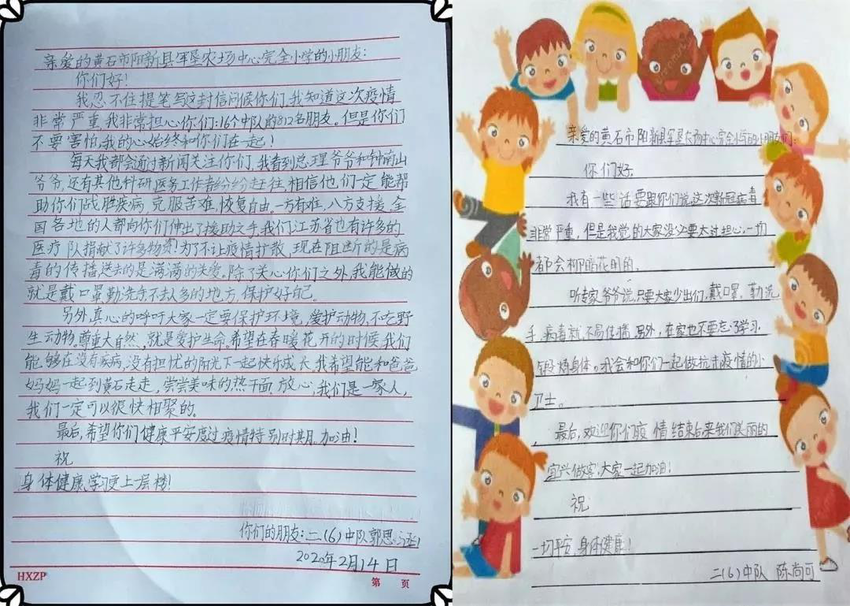 亲爱的黄石市阳新县军垦农场中心完全小学的小朋友:
你们好!
我忍不住提笔写这封信问候你们,我知道这次疫情
非常严重,我非常担心你们:16个中队的812名朋友。但是你们
不要害怕,我的心始终和你们在一起!
每天我都会通过新闻关注你们,我看到总理爷爷和钟南山
爷爷,还有其他科研医务工作者纷纷赶往,相信他们一定能帮
助你们战胜疾病,克服苦难,恢复自由。一方有难,八方支援,全
国各地的人都向你们伸出了援助之手,我们江苏省也有许多的
医疗队捐献了许多物资,为了不让疫情扩散,现在阻断的是病
毒的传播,送去的是满满的关爱,除了关心你们之外,我能做的
就是戴口罩勤洗手不去人多的地方,保护好自己。
另外,真心的呼吁大家一定要保护环境,爱护动物,不吃野
生动物,尊重大自然,就是爱护生命,希望在春暖花开的时候,我们
能够在没有疾病,没有担忧的阳光下一起快乐成长,我希望能和爸爸
妈妈一起到黄石走走,尝尝美味的热干面,放心,我们是一家人,
我们一定可以很快相聚的。
最后,希望你们健康平安度过疫情特别时期,加油!
祝
身体健康,学习更上一层楼!
你们的朋友:二(6)中队郭思涵
2020年2月14日
HXZP
第 页
亲爱的黄石市阳新县军垦农场中心完全小学的小朋友们:
你们好,
我有一些话要跟你们说,这次新冠病毒
非常严重,但是我觉的大家没必要太过担心,一切
都会柳暗花明的。
听专家爷爷说,只要大家少出们,戴口罩,勤洗
手,病毒就不易传播,另外,在家也不要忘了学习,
锻炼身体。我会和你们一起做抗击疫情的小
卫士。
最后,欢迎你们疫情结束后来我们美丽的
宜兴做客,大家一起加油!
祝:
一切平安,身体健康!
二(6)中队 陈尚可